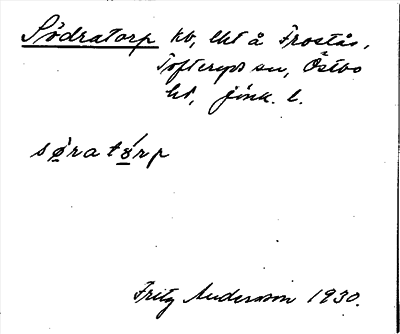 Södratorp kb, lht å Frostås,
Tofteryds sn, Östbo
hd, Jönk. l.
söratórp
Fritz Andersson 1930.